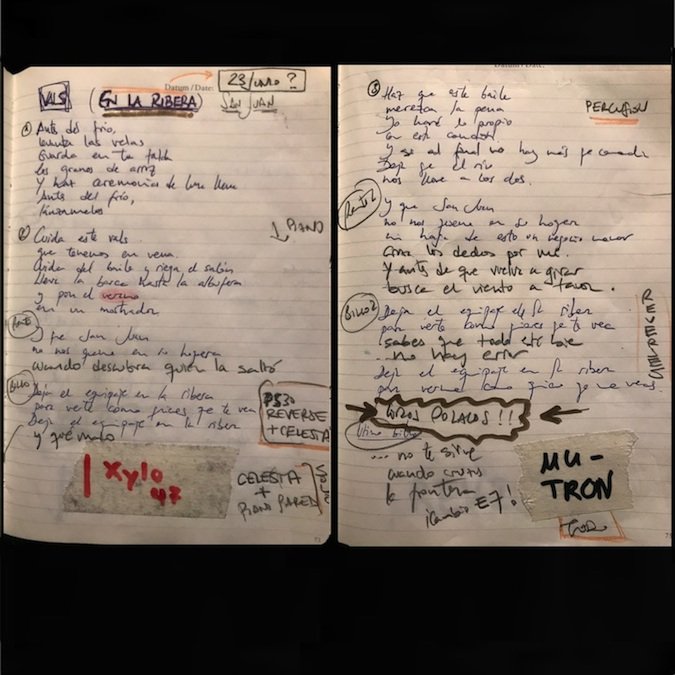 Datum / Date:
23/Junio?
VALS
(EN LA RIBERA)
SAN JUAN
① Antes del frío,
levanta las velas
Guarda en tu falda
los granos de arroz
Y haz ceremonias de luna llena
Antes del frío,
② Cuida este vals
que tenemos en vena.
Cuida del baile y riega el salón
lleva la barca hasta la albufera
y pon el verano
en un mostrador
↓ PIANO
Puente
Y que San Juan
no nos queme en su hoguera
cuando descubra quien la saltó
Estribillo
Deja el equipaje en la ribera
para verte como quieres que te vea
Deja el equipaje en la ribera
y
PS30
REVERSE
+ CELESTA
| Xylo
47
CELESTA
+
PIANO PARED
71
Datum / Date:
③ Haz que este baile
merezca la pena
Yo haré lo propio
con esta canción
Y si al final no hay más que
Deja que el río
nos lleve a los dos.
PERCUSION
Puente 2
Y que San Juan
no nos queme en su hoguera
ni haga de esto un negocio menor
cruza los dedos por mí.
Y antes de que vuelva a girar
busca el viento a favor.
REVERSES
Deja el equipaje en la ribera
para verte como quieres que te vea
sabes que todo este
... no hay error
Deja el equipaje en la ribera
para verme como quiero que me veas.
→ COROS POLACOS!! ←
Último
... no te sirve
cuando cruzas
la frontera
¡Cambio E7!
MU-
TRON